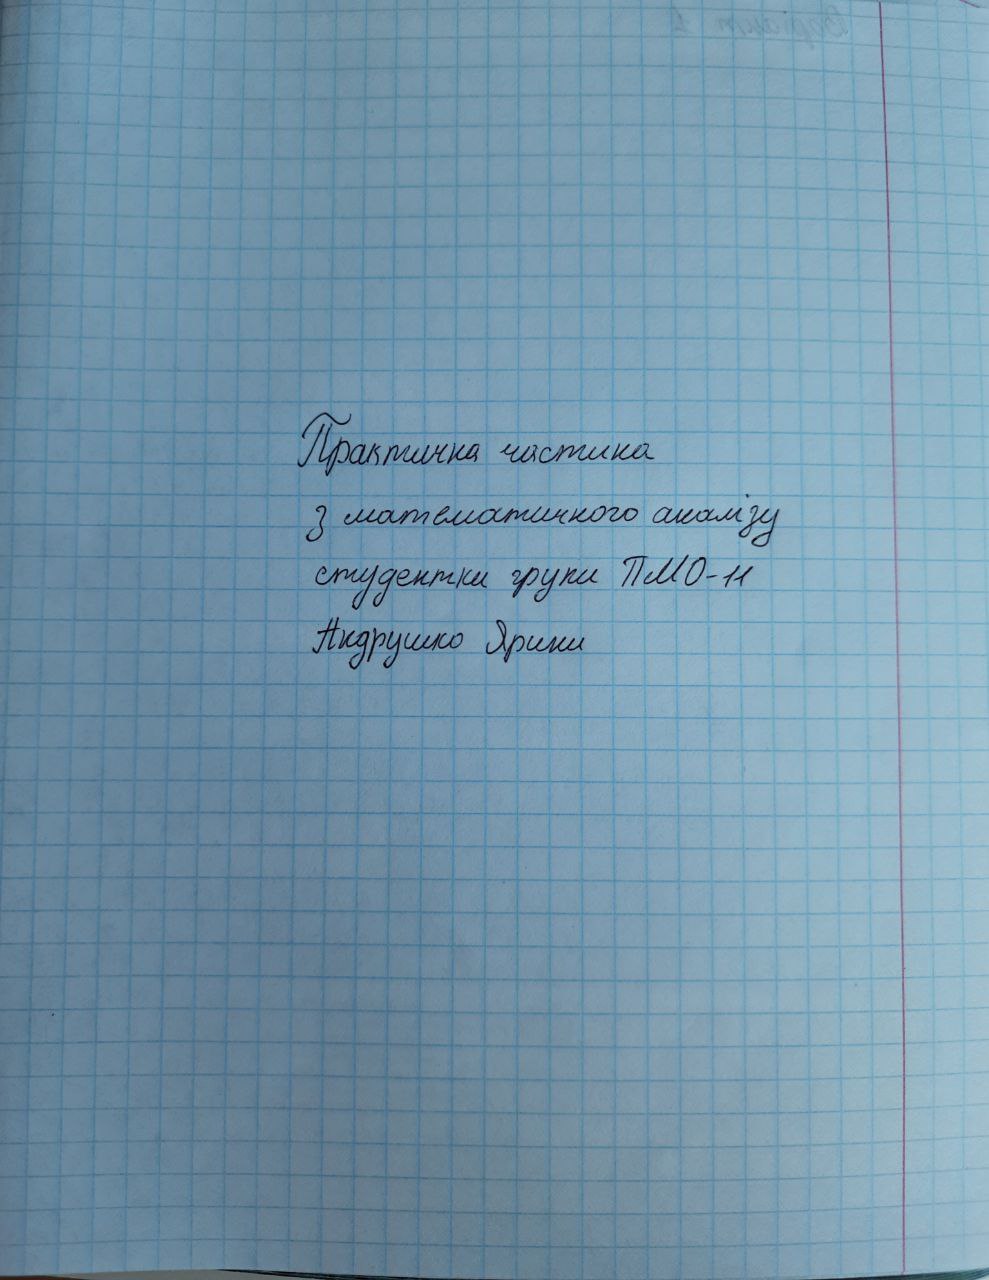 Практична частина
з математичного аналізу
студентки групи ПМО-11
Андрушко Ярини